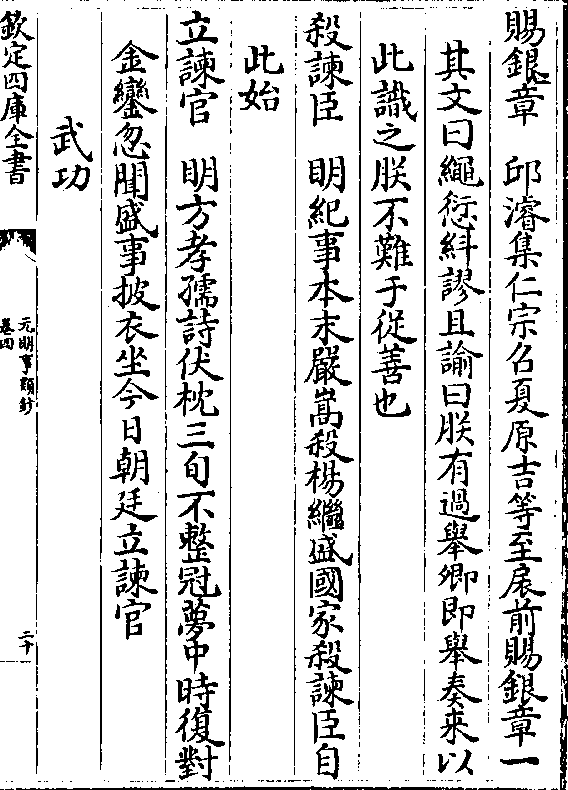 賜銀章　邱濬集仁宗召夏原吉等至扆前賜銀章一
其文曰繩愆糾謬且諭曰朕有過舉卿即舉奏来以
此識之朕不難于從善也
殺諫臣　明紀事本末嚴嵩殺楊繼盛國家殺諫臣自
此始
立諫官　明方孝孺詩伏枕三旬不整冠夢中時復對
金鑾忽聞盛事披衣坐今日朝廷立諫官
武功
欽定四庫全書
元明事類鈔
卷四
二十